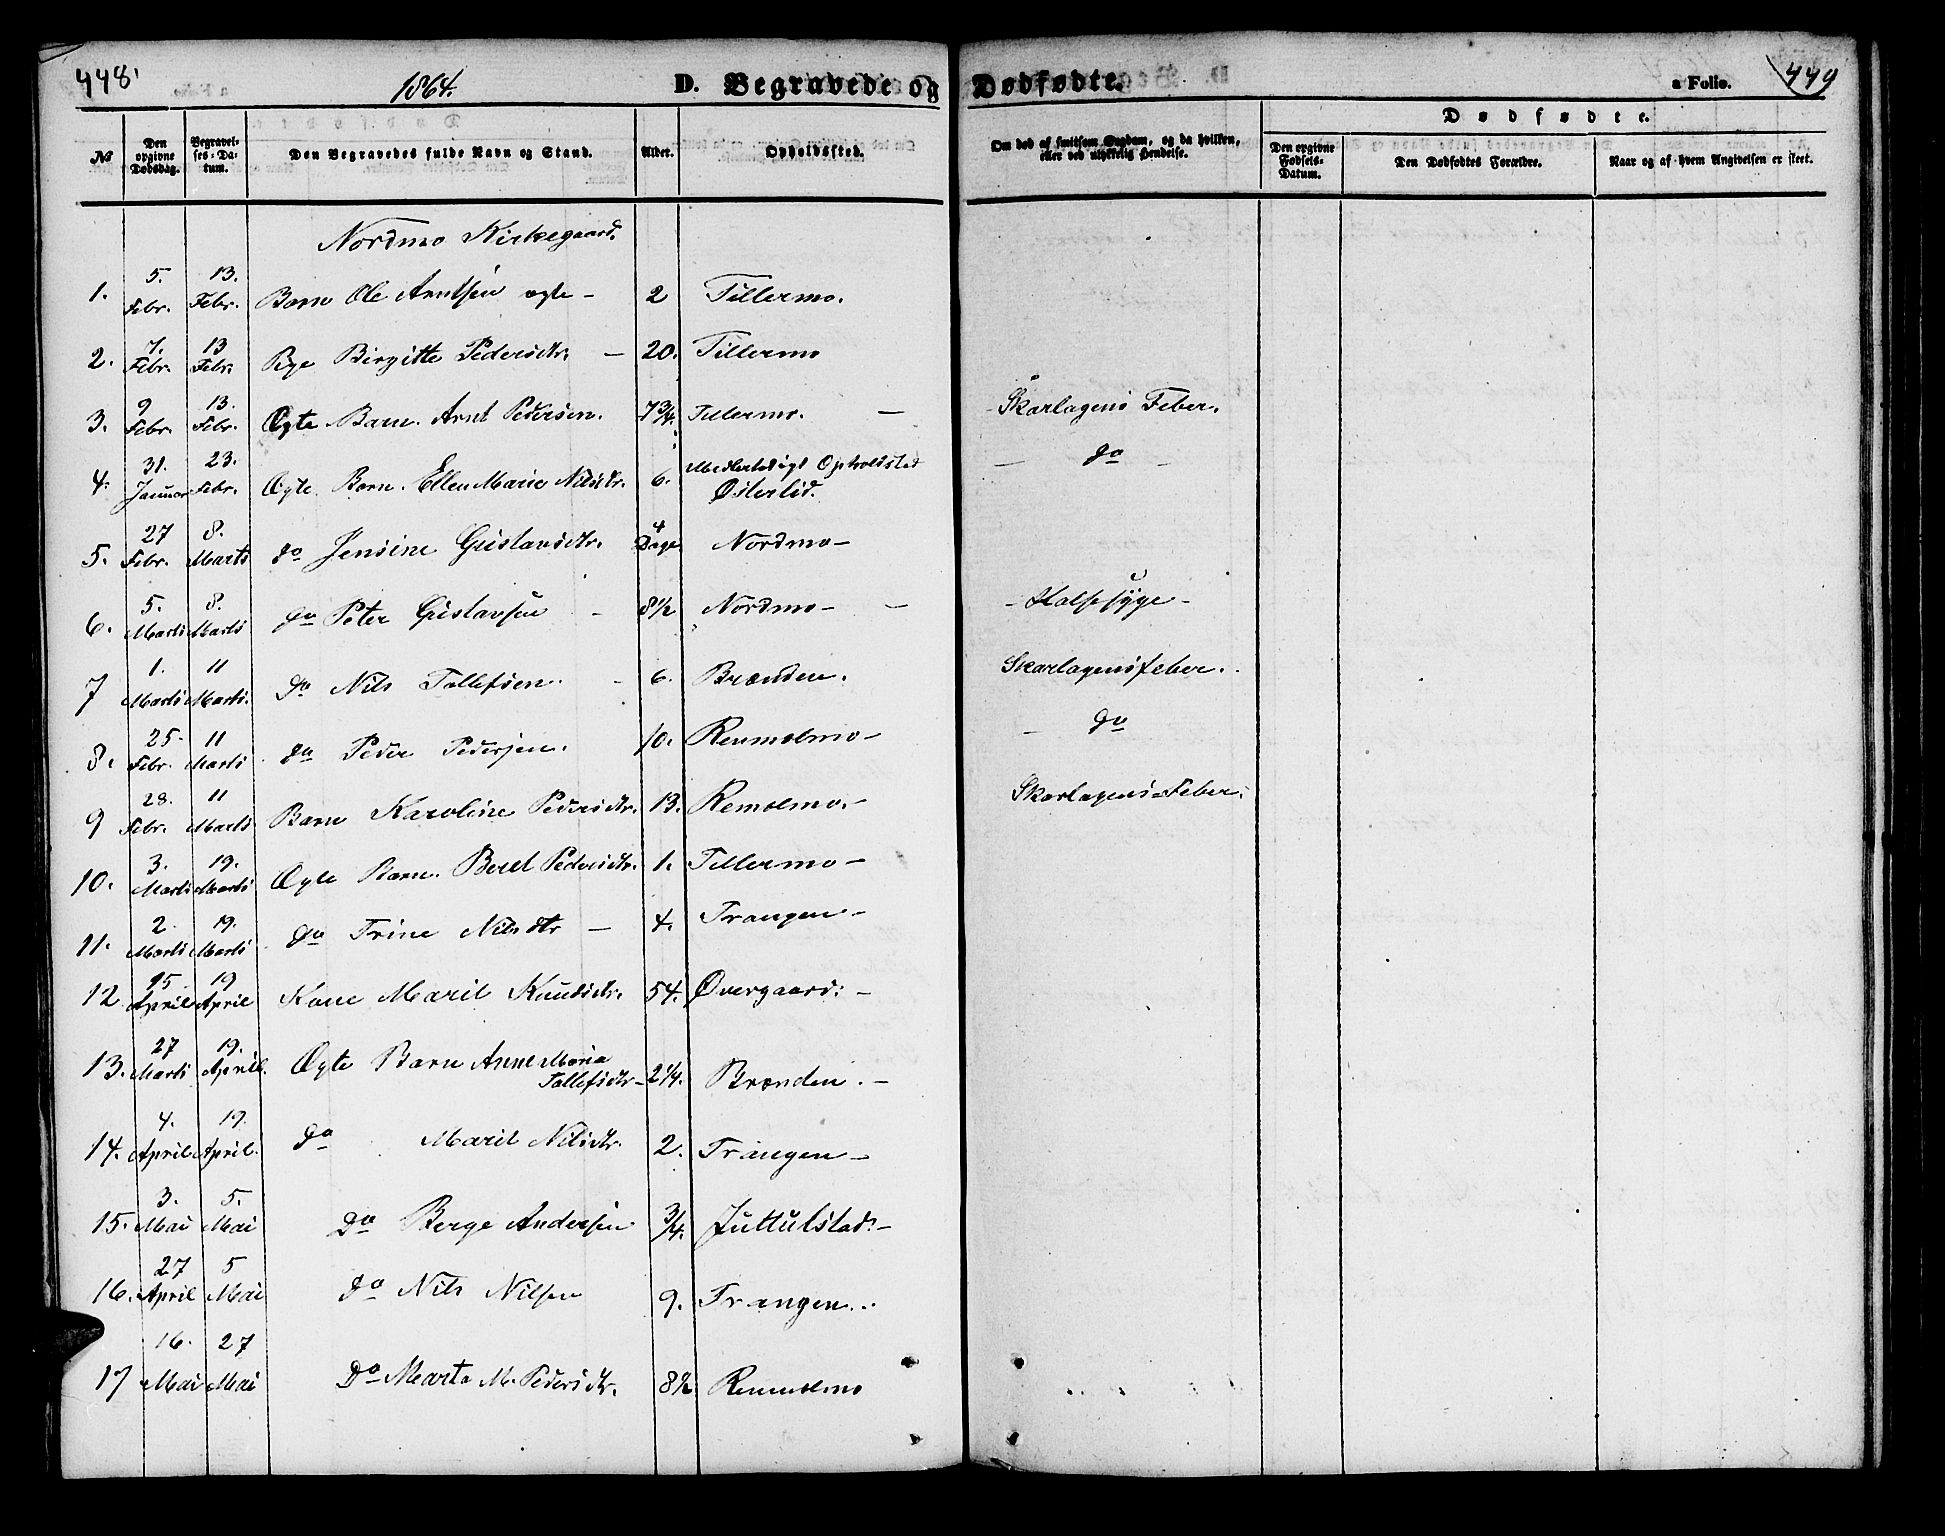 448
1864.
D. Begravede og Dødfødte.
a Folio. 449
No
Den opgivne Dødsdag.
Begravelses-Datum.
Den Begravedes fulde Navn og Stand.
Alder.
Opholdssted.
Om død af smitsom Sygdom, og da hvilken, eller ved ulykkelig Hændelse.
Dødfødte.
Den opgivne Fødsels-Datum.
Den Dødfødtes Forældre.
Naar og af hvem Angivelsen er skeet.
Nordmo Kirkegaard.
1. 5. Febr. 13. Febr. Barn Ole Arntsen ægte - 2 Tillermo.
2. 7. Febr. 13 Febr. Pige Birgitte Pedersdtr. - 20. Tillermo
3. 9 Febr. 13. Febr. Ægte Barn. Arnt Pedersen. 7 3/4. Tillermo. - - Skarlagens Feber.
4. 31. Januar 23. Febr. Ægte Barn. Ellen Marie Nilsdtr. 6. Midlertidigt Opholdsted Østerlid. - do -
5. 27 Febr. 8. Marts do Jensine Gustavsdtr. 4 Dage Nordmo -
6. 5. Marts 8. Marts do Peter Gustavsen - 8 1/2 Nordmo - - - Halssyge -
7 1. Marts 11 Marts. do Nils Tollefsen. - 6. Brænden. Skarlagensfeber.
8. 25. Febr. 11 Marts do Peder Pedersen. 10. Renmolmo - - do
9 28. Febr. 11 Marts Barn Karoline Pedersdtr. 13. Remolmo. - Skarlagens-Feber.
10. 3. Marts 19. Marts Ægte Barn. Beret Pedersdtr. 1. Tillermo -
11. 2. Marts 19. Marts do Trine Nilsdtr - 4. Trangen -
12 15. April 19 April Kone Marit Knudsdtr. 54. Øvergaard. -
13. 27 Marts 19. April. Ægte Barn Anne Maria Tollefsdtr - 2 1/4. Brænden. -
14. 4. April 19. April. do Marit Nilsdtr. 2. Trangen -
15. 3. Mai 5. Mai Do Berge Andersen 3/4. Juttulstad. -
16. 27 April 5 Mai do Nils Nilsen 9. Trangen..
17 16. Mai 27 Mai Do Marta M. Pedersdtr. 8 1/2 Renmolmo